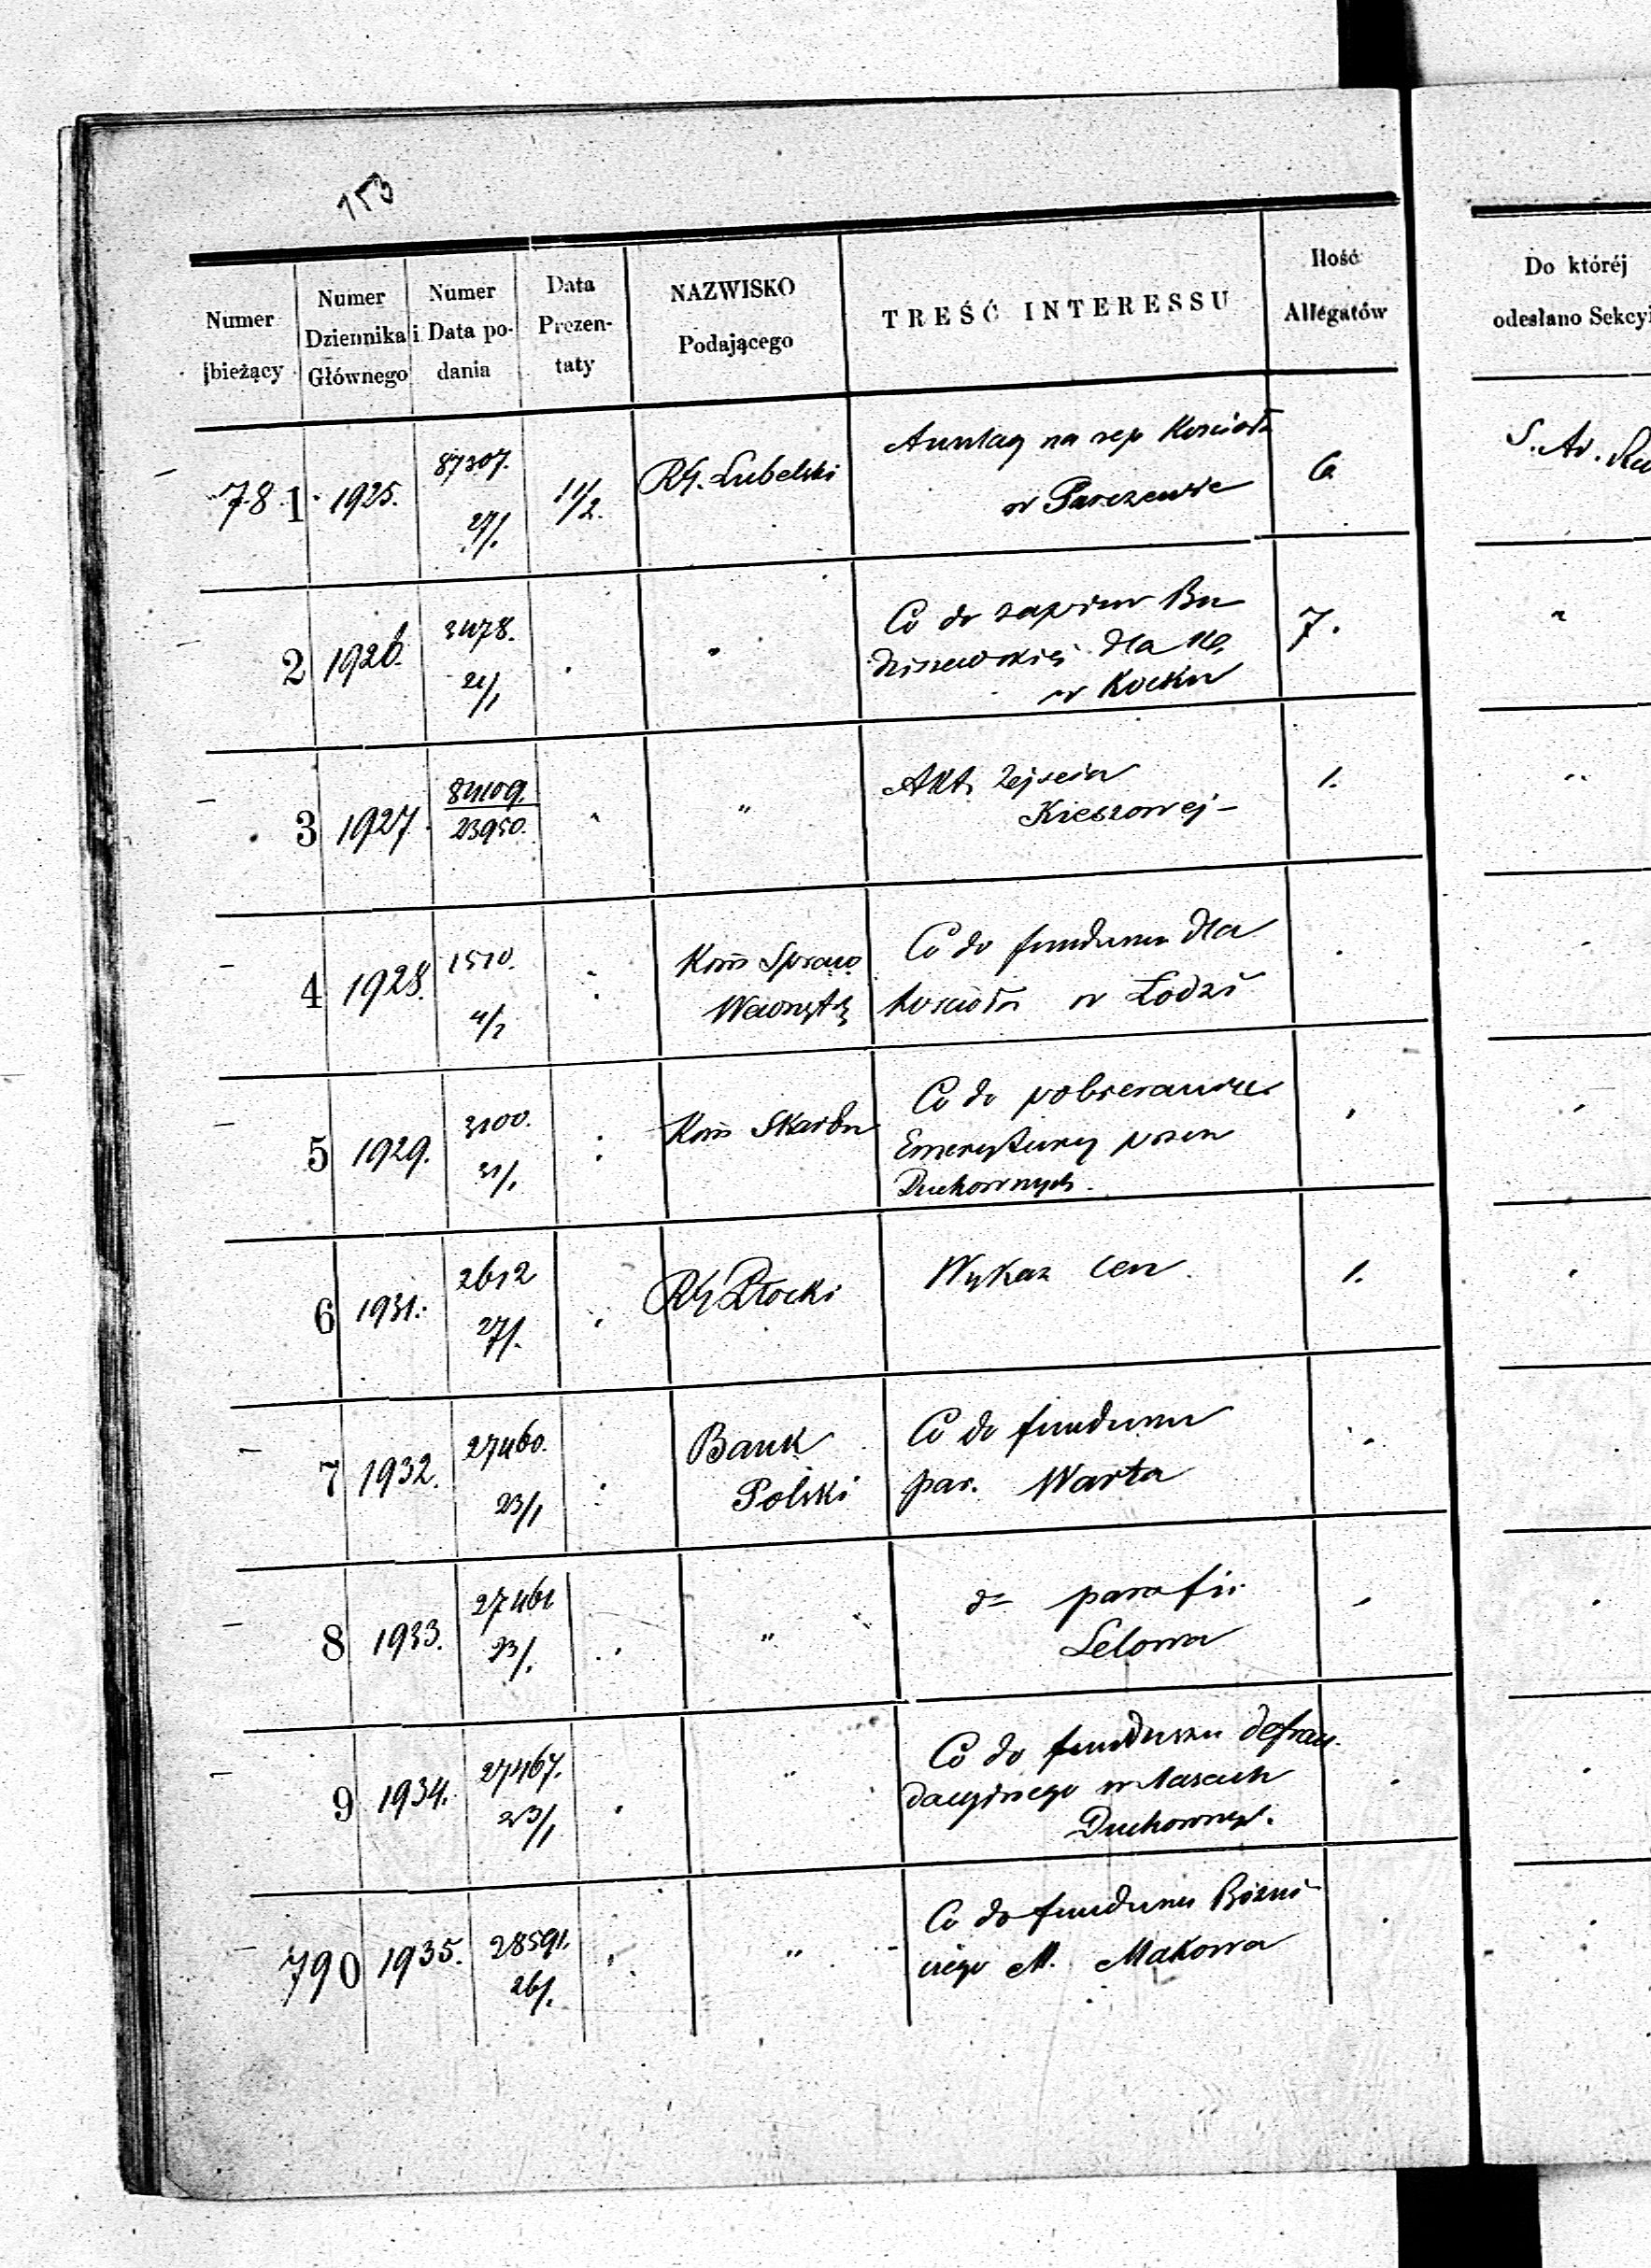 153
Numer bieżący
Numer Dziennika Głównego
Numer i Data podania
Data Prezentaty
NAZWISKO Podającego
TREŚĆ INTERESSU
Ilość Allegatów
Do któréj odesłano Sekcyi
781 1925. 87307. 27/1. 11/2. RG. Lubelski na rep Kościoła 6. S. Ad.
w Parczewie
2 1926. 3478. 21/1 " Co do zapisu Bu 7. "
dziszewskiéj dla Ko
w Kocku
3 1927. 84109. 23950. " Akt zejścia 1. "
Kieszowej
4 1928. 1510. 4/2 Kom Spraw Co do funduszu dla
Wewnętrz kościoła w Łodzi
5 1929. 3100. 31/1 Kom Skarbu Co do pobierania
Emerytury przez
Duchownych.
6 1931. 2612 27/1. RG Płocki Wykaz cen. 1.
7 1932. 27460. 23/1 Bank Co do funduszu
Polski par. Warta
8 1933. 27461 23/1. " do parafii
Lelowa
9 1934. 27467. 23/1 " Co do funduszu defrau
dacyjnego w lasach
Duchownych.
790 1935. 28591. 26/1. " Co do funduszu Bożni
czego M. Makowa